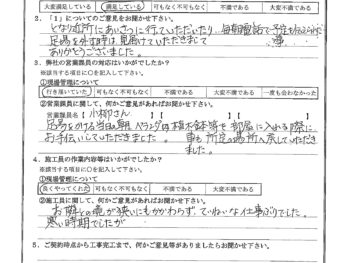 大変満足している 満足している 可も不可もない 不満である 大変不満である
2.「1」についてのご意見をお聞かせ下さい。
となり近所にあいさつに行っていただいたり、毎朝電話で予定も
足場を外す時は見届けていただきまして
ありがとうございました。
3. 弊社の営業課員の対応はいかがでしたか?
※該当する項目に○を記入して下さい。
①現場管理について
行き届いていた 可も不可もなく 不満である 大変不満である 一度も会わなかった
②営業課員に関して、何かご意見があればお聞かせ下さい。
営業課員名【 小柳さん 】【 】【 】
足場をかける当日の朝 ベランダの植木鉢等を部屋に入れる際に
お手伝いしていただきました。 車も所定の場所へ戻していただき
ました。
4. 施工員の作業内容等はいかがでしたか?
※該当する項目に○を記入して下さい。
①現場管理について
良くやってくれた 可も不可もなく 不満である 大変不満である
②施工員に関して、何かご意見があればお聞かせ下さい。
お隣との境が狭いにもかかわらず、ていねいな仕事ぶりでした。
寒い時期でしたが
5. ご契約時点から工事完工まで、何かご意見等がありましたらお聞かせ下さい。